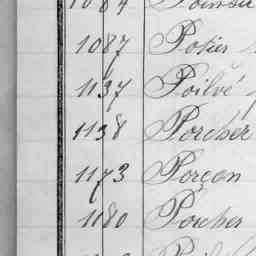 1087 Potier
1137 Poilvé
1138 Porcher
1173 Porçon
1180 Porcher